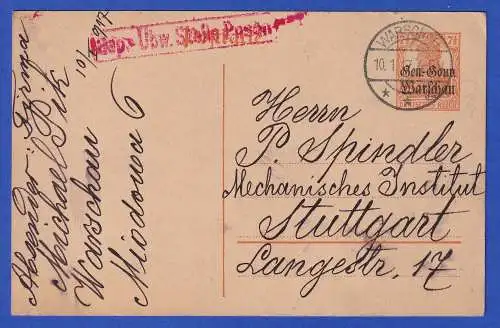 Absender: Firma
Michael Pik
Warschau
Miodowa 6
10/I 1917
Ubw. Stelle Posen
WARSCHAU
10.1
7½
Gen.-Gouv.
Warschau
Herrn
P. Spindler
Mechanisches Institut
Stuttgart
Langestr. 17